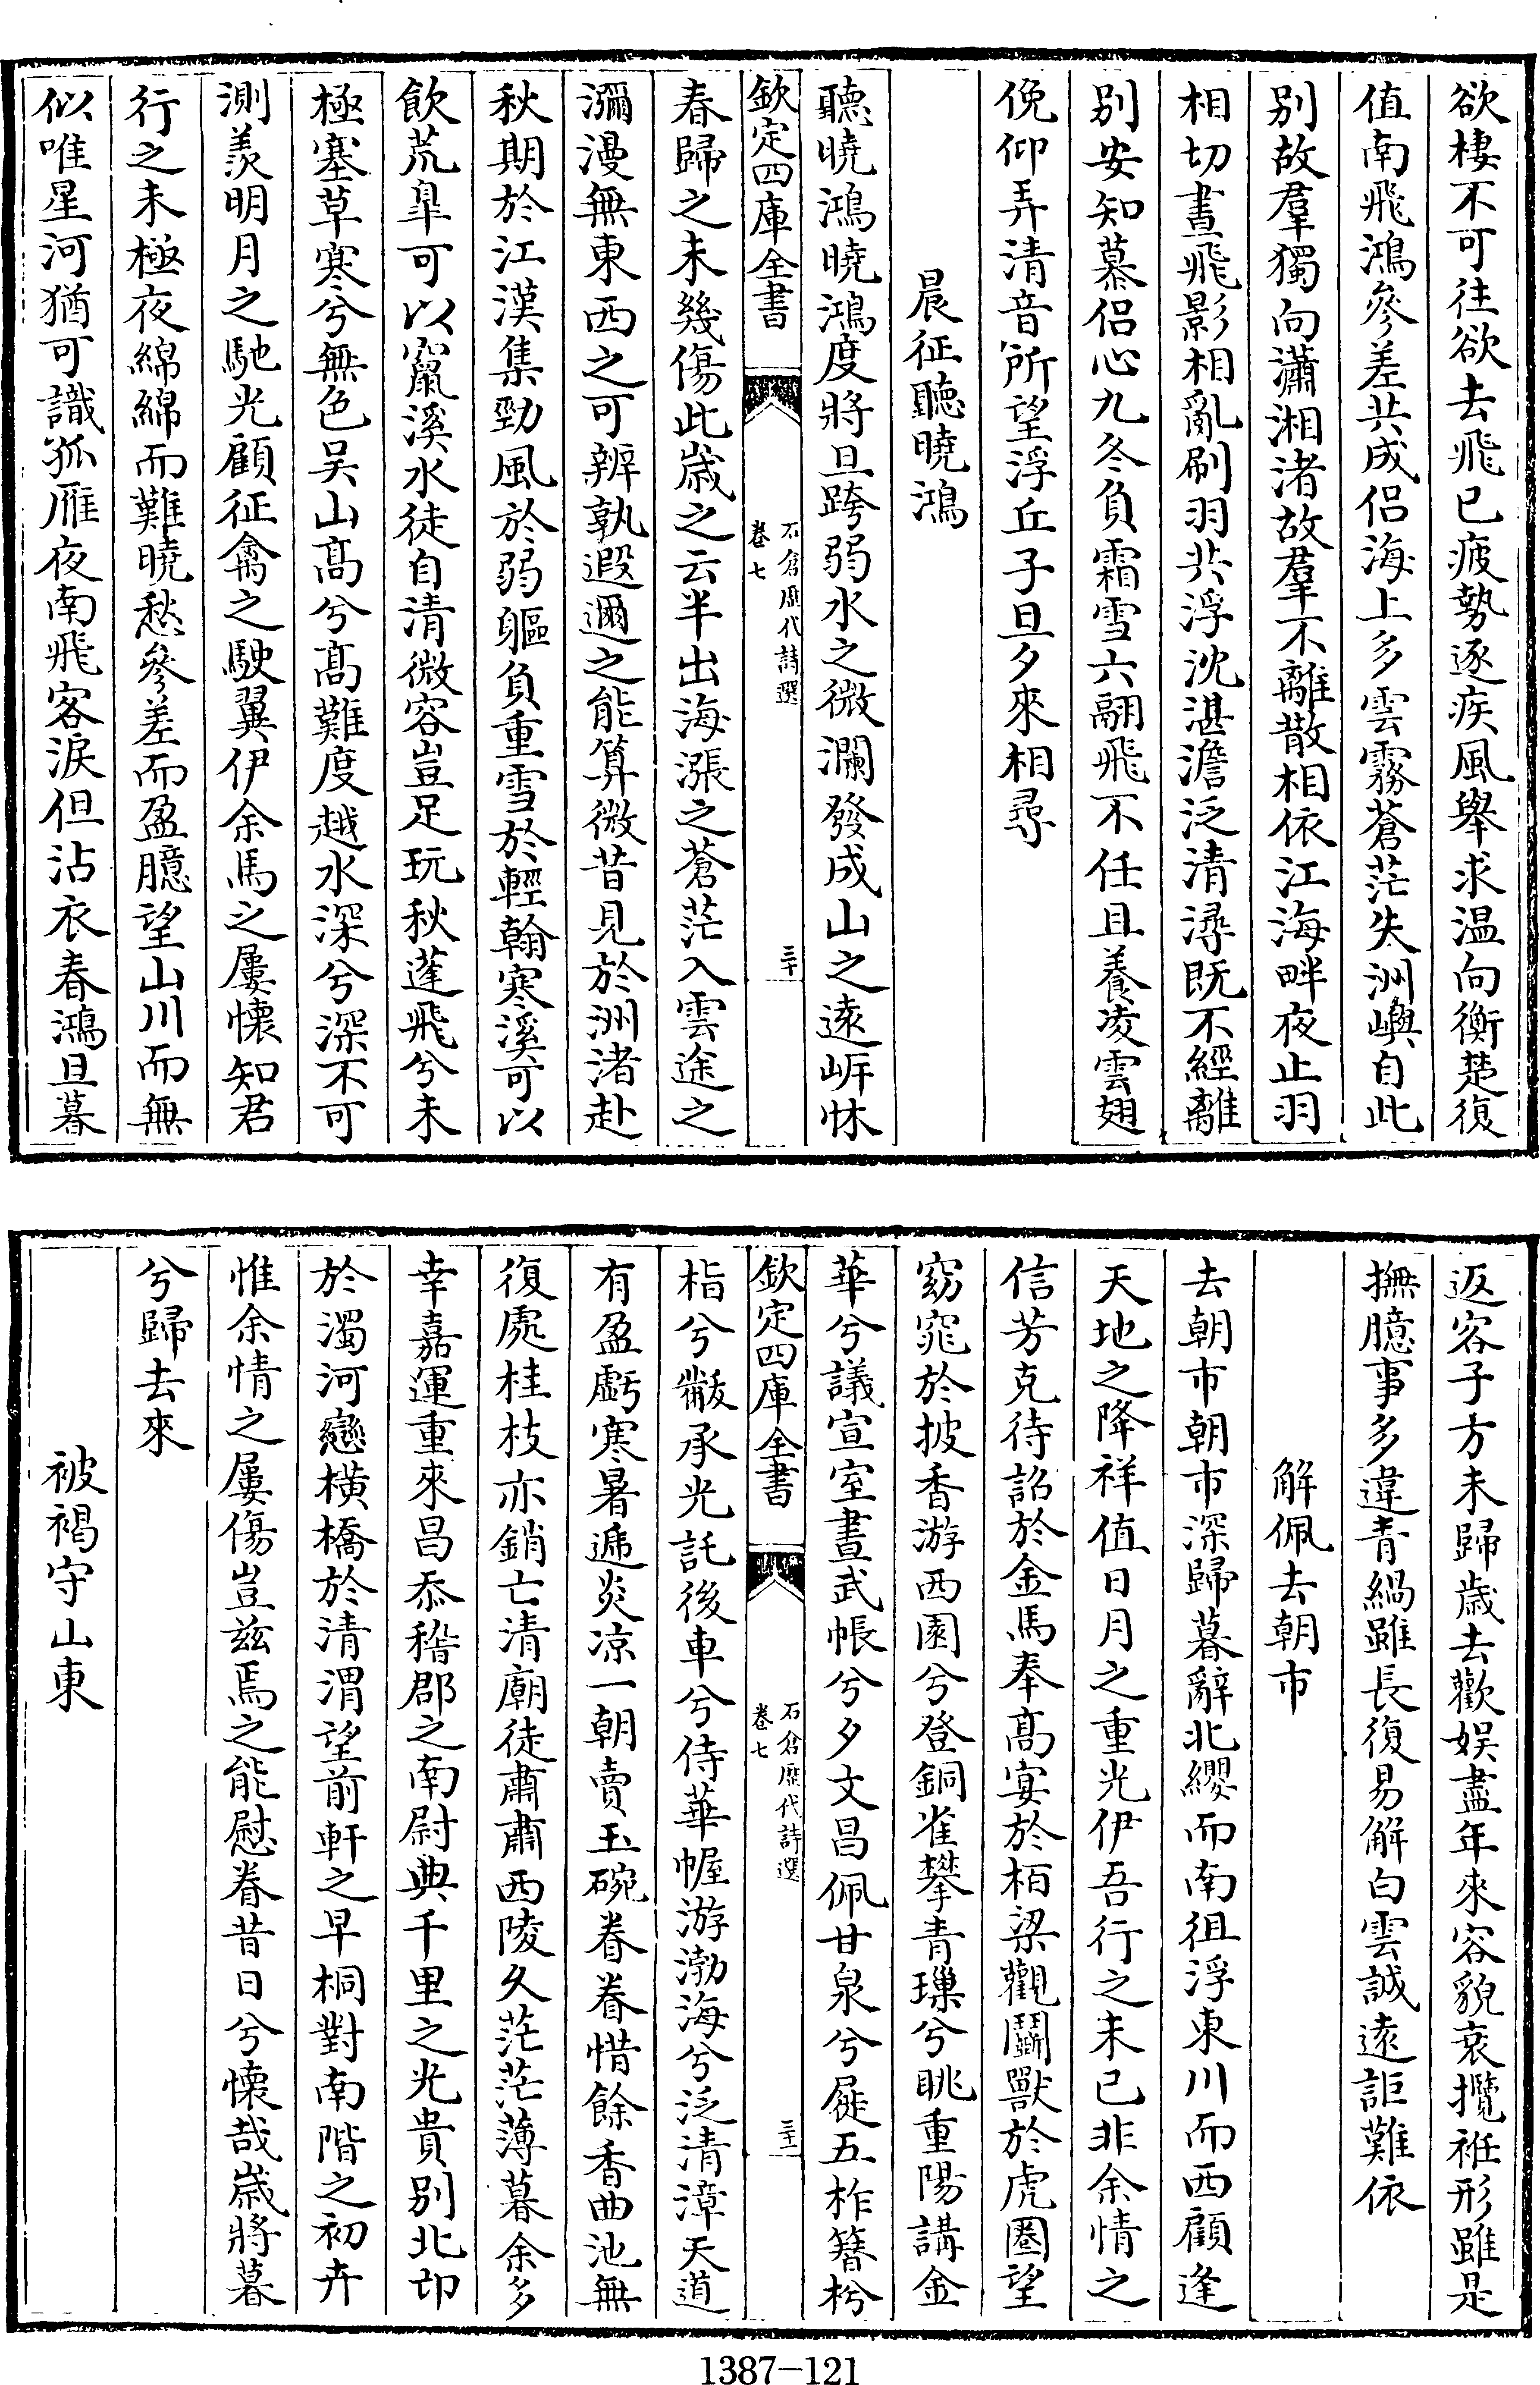 欲棲不可住欲去飛已疲勢逐疾風舉求温向衡楚復
值南飛鴻參差共成侣海上多雲霧蒼茫失洲嶼自此
别故羣獨向瀟湘渚故羣不離散相依江海畔夜止羽
相切晝飛影相亂刷羽共浮沈湛澹泛清潯既不經離
别安知慕侣心九冬負霜雪六翮飛不任且養凌雲翅
俛仰弄清音所望浮丘子旦夕來相尋
晨征聽曉鴻
聽曉鴻曉鴻度將旦跨弱水之微瀾發成山之遠㟁怵
欽定四庫全書
石倉厯代詩選
卷七
三十
春歸之未幾傷此嵗之云半出海漲之蒼茫入雲途之
瀰漫無東西之可辨孰遐邇之能算微昔見於洲渚赴
秋期於江漢集勁風於弱軀負重雪於輕翰寒溪可以
飲荒臯可以竄溪水徒自清微容豈足玩秋蓬飛兮未
極塞草寒兮無色吴山髙兮髙難度越水深兮深不可
測羨明月之馳光顧征禽之駛翼伊余馬之屢懷知君
行之未極夜綿綿而難曉愁參差而盈臆望山川而無
似唯星河猶可識孤雁夜南飛客淚但沾衣春鴻旦暮
返客子方未歸歲去歡娱盡年來容貌衰攬袵形雖是
撫臆事多違青緺雖長復易解白雲誠遠詎難依
解佩去朝市
去朝市朝市深歸暮辭北纓而南徂浮東川而西顧逢
天地之降祥值日月之重光伊吾行之未已非余情之
信芳克待詔於金馬奉髙宴於栢梁觀鬭獸於虎圈望
窈窕於披香游西園兮登銅雀攀青瑣兮眺重陽講金
華兮議宣室晝武帳兮夕文昌佩甘泉兮屣五柞簪枍
栺兮黻承光託後車兮侍華幄游渤海兮泛清漳天道
欽定四庫全書
石倉厯代詩選
卷七
三十一
有盈虧寒暑遞炎凉一朝賣玉碗眷眷惜餘香曲池無
復處桂枝亦銷亡清廟徒肅肅西陵久茫茫薄暮余多
幸嘉運重來昌忝稽郡之南尉典千里之光貴别北邙
於濁河戀横橋於清渭望前軒之早桐對南階之初卉
惟余情之屢傷豈兹焉之能慰眷昔日兮懷哉嵗將暮
兮歸去來
被褐守山東
1387-121